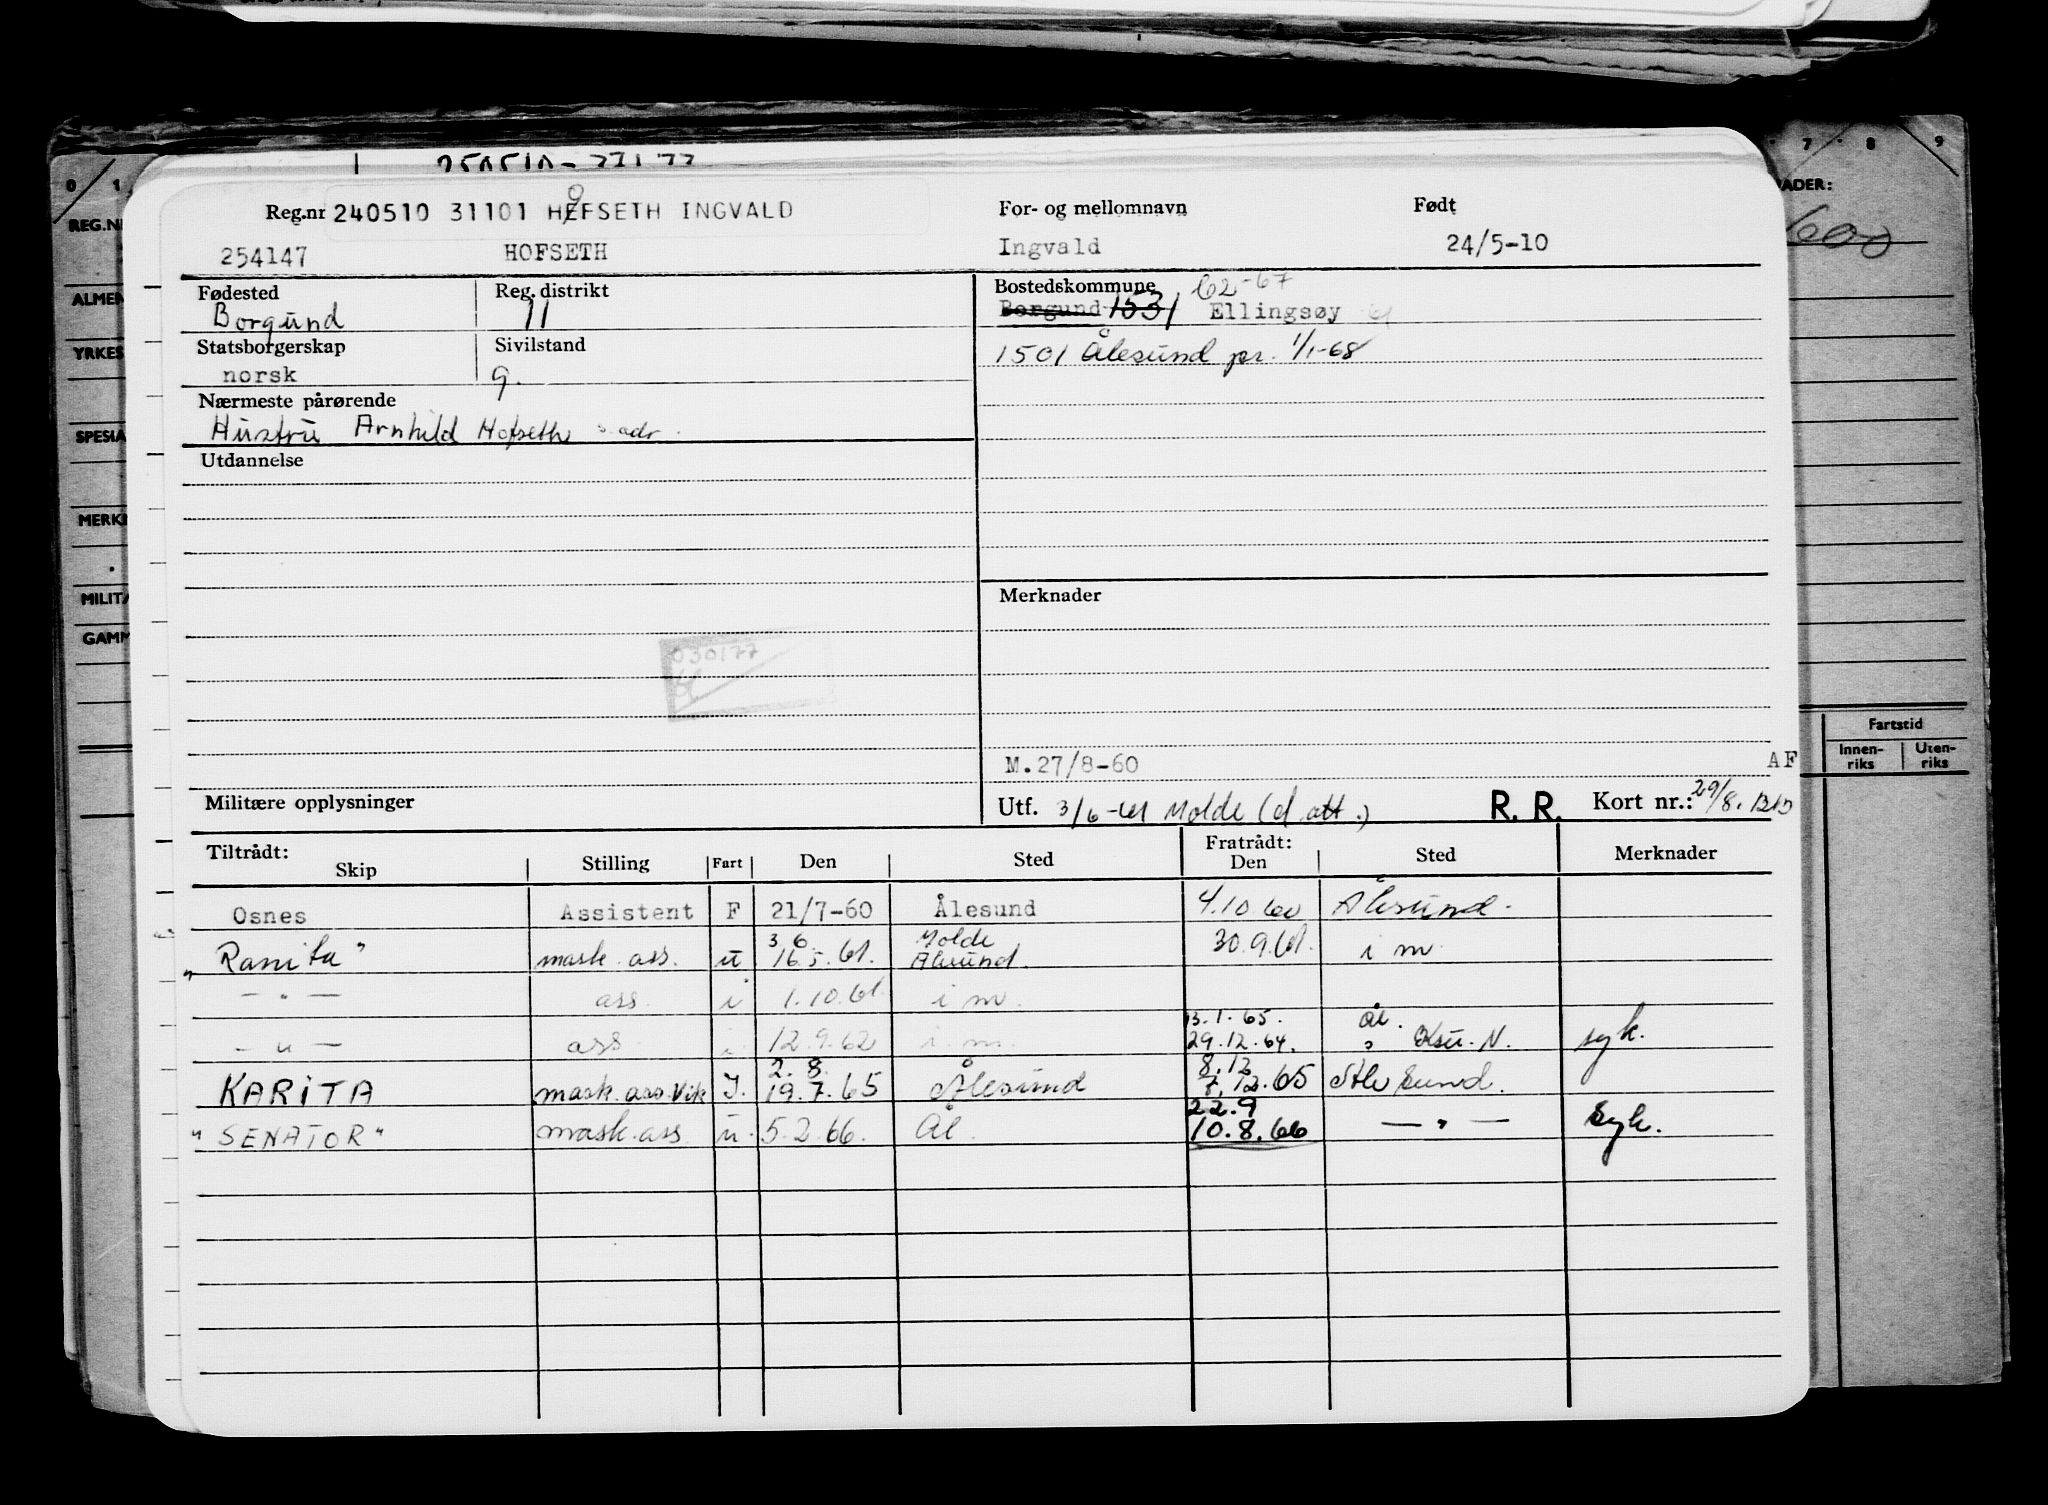 0 1 7 8 9
Reg.nr 240510 31101 HØFSETH INGVALD For- og mellomnavn Født
254147 HOFSETH Ingvald 24/5-10
REG.N
ADER:
600
Fødested Reg. distrikt Bostedskommune 62-67
Borgund 11 Borgund 1531 Ellingsøy
Statsborgerskap Sivilstand 1501 Ålesund pr. 1/1-68
norsk g.
Nærmeste pårørende
Hustru Arnhild Hofseth s. adr.
Utdannelse
ALMEN
YRKES
SPESIA
MERK
MILITA
GAMM
Merknader
030177
M.27/8-60 AF
Militære opplysninger Utf. 3/6-61 Molde (d.att.) R. R. Kort nr.: 29/8.
Fartstid
Innen-riks Uten-riks
Tiltrådt: Fratrådt:
Skip Stilling Fart Den Sted Den Sted Merknader
Osnes Assistent F 21/7-60 Ålesund 4.10.60 Ålesund.
"Ranita" mask. ass. u 3.6. 16.5.61. Molde Ålesund. 30.9.61. i m
— " — ass. i 1.10.61 i m.
— " — ass i 12.9.62 i.m. 13.1.65. 29.12.64. Ål. syk.
KARITA mask. ass. Vik I. 2.8. 19.7.65 Ålesund 8.12 7.12.65 Ålesund.
"SENATOR" mask. ass. u. 5.2.66. Ål. 22.9 10.8.66 — " — Syk.